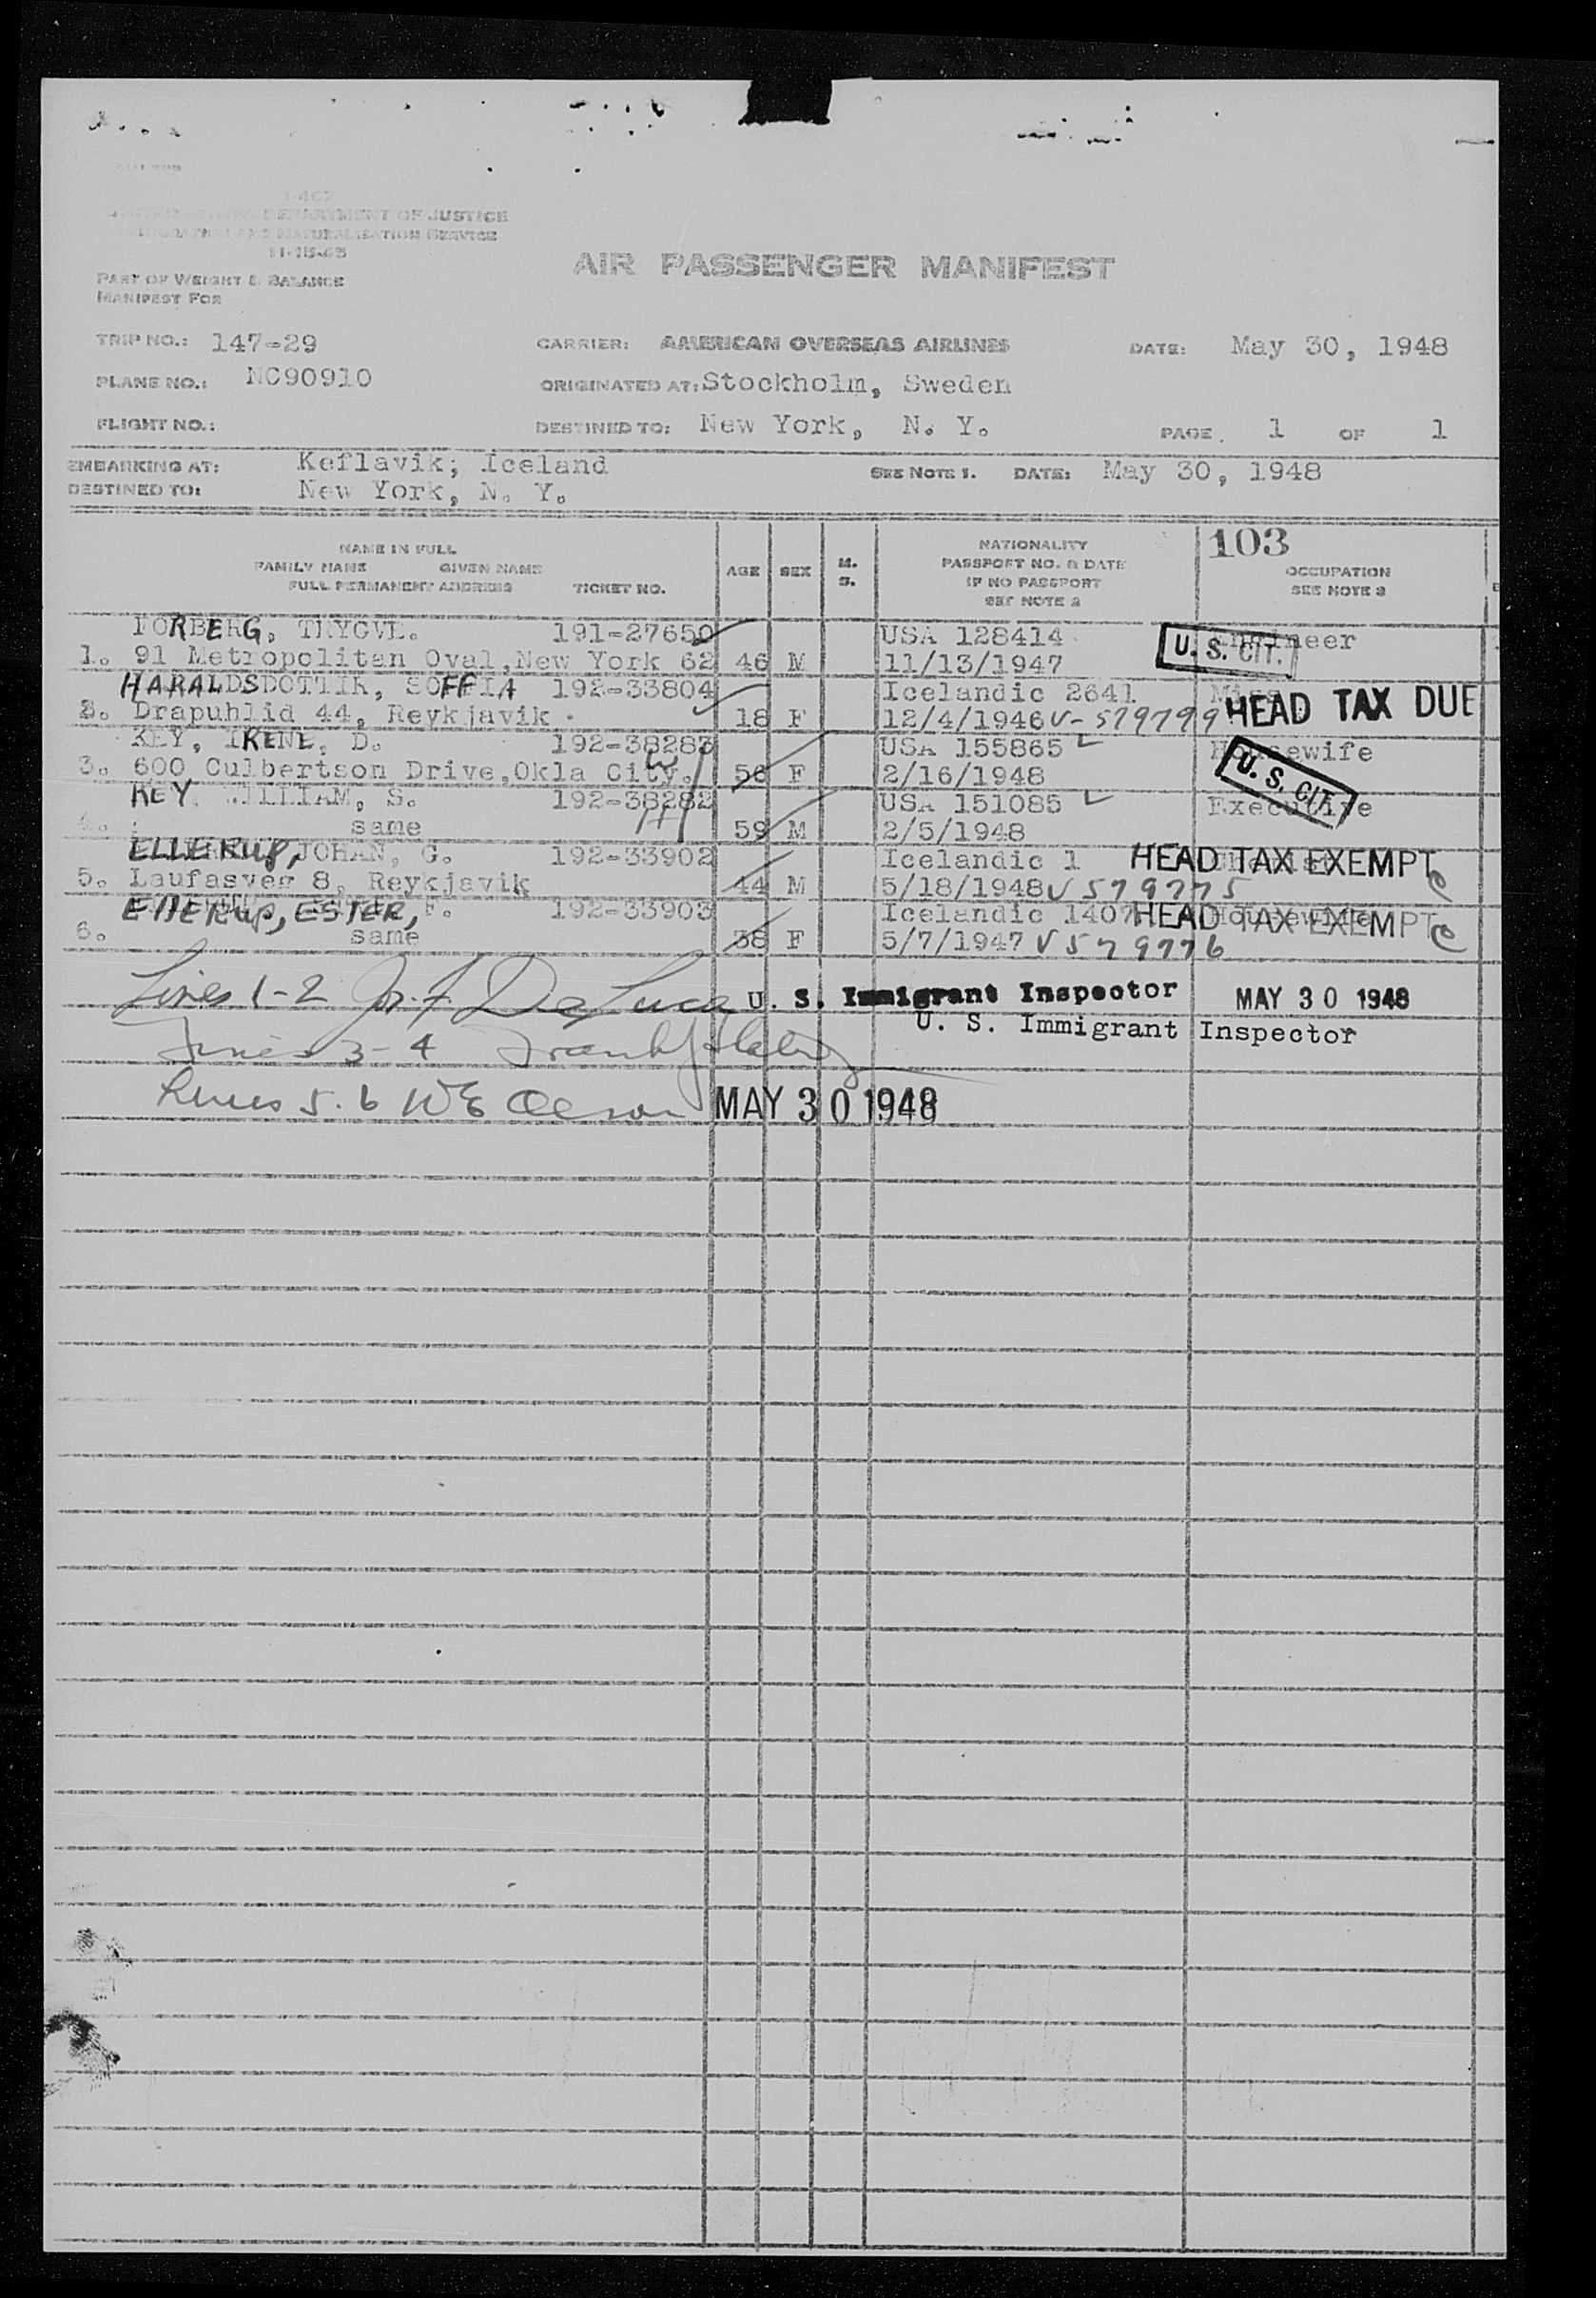 I-467
DEPARTMENT OF JUSTICE
IMMIGRATION AND NATURALIZATION SERVICE
11-15-45
AIR PASSENGER MANIFEST
PART OF WEIGHT & BALANCE
MANIFEST FOR
TRIP NO.: 147-29 CARRIER: AMERICAN OVERSEAS AIRLINES DATE: May 30, 1948
PLANE NO.: NC90910 ORIGINATED AT: Stockholm, Sweden
FLIGHT NO.: DESTINED TO: New York, N. Y. PAGE 1 OF 1
EMBARKING AT: Keflavik; Iceland SEE NOTE 1. DATE: May 30, 1948
DESTINED TO: New York, N. Y.
NAME IN FULL
FAMILY NAME GIVEN NAME
FULL PERMANENT ADDRESS TICKET NO. AGE SEX M. S. NATIONALITY PASSPORT NO. & DATE IF NO PASSPORT SEE NOTE 2 103 OCCUPATION SEE NOTE 3
FORBERG, TRYGVE. 191-27650 USA 128414 U. S. CIT. Engineer
1. 91 Metropolitan Oval, New York 62 46 M 11/13/1947
HARALDSDOTTIR, SOFFIA 192-33804 Icelandic 2641 Miss
2. Drapuhlid 44, Reykjavik 18 F 12/4/1946 V-579799 HEAD TAX DUE
KEY, IRENE, D. 192-38283 USA 155865 Housewife
3. 600 Culbertson Drive, Okla City. 56 F 2/16/1948 U. S. CIT.
KEY, WILLIAM, S. 192-38282 USA 151085 Executive
4. same 59 M 2/5/1948
ELLERUP, JOHAN, G. 192-33902 Icelandic 1 HEAD TAX EXEMPT
5. Laufasveg 8, Reykjavik 44 M 5/18/1948 V 579775
ELLERUP, ESTER, F. 192-33903 Icelandic 1407 Housewife HEAD TAX EXEMPT
6. same 38 F 5/7/1947 V 579776
Lines 1-2 Jos. F. DeLuca U. S. Immigrant Inspector MAY 30 1948
U. S. Immigrant Inspector
Lines 3-4 Frank J.
Lines 5. 6 WE Olson MAY 30 1948